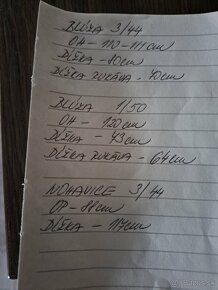 BLÚZA 3/44
OH - 110 - 111cm
DĹŽKA - 80cm
DĹŽKA RUKÁVA - 40cm
BLÚZA 1/50
OH - 120cm
DĹŽKA - 73cm
DĹŽKA RUKÁVA - 64cm
NOHAVICE 3/44
OP - 88cm
DĹŽKA - 117cm